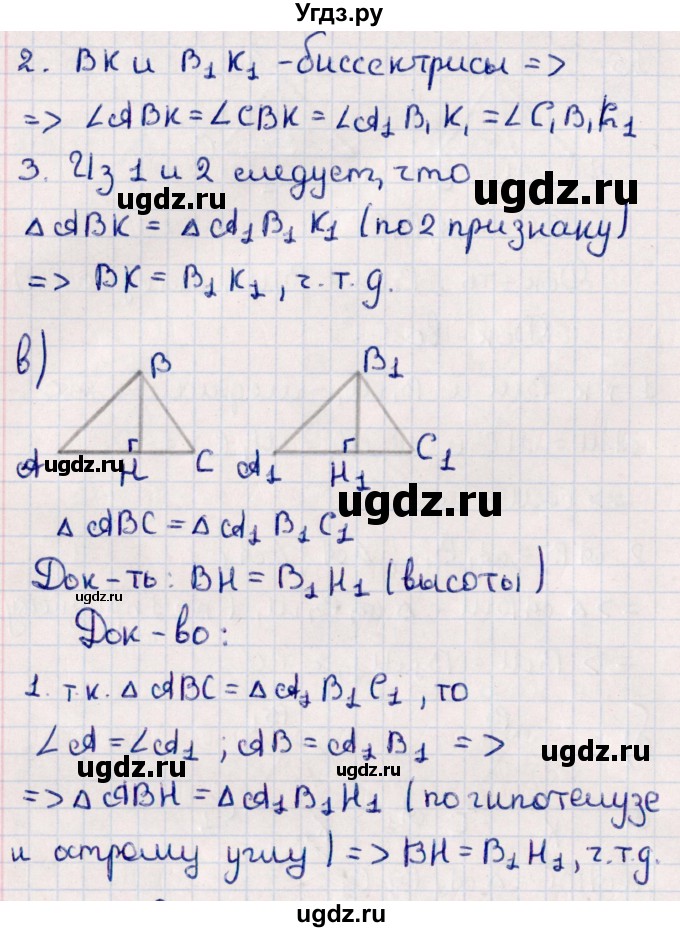 Угдз.ру
2. BK и B₁K₁ - биссектрисы =>
=> ∠ABK = ∠CBK = ∠A₁B₁K₁ = ∠C₁B₁K₁
3. Из 1 и 2 следует, что
ugdz.ru
ugdz.ru
△ABK = △A₁B₁K₁ (по 2 признаку)
=> BK = B₁K₁, ч.т.д.
в)
B
B₁
A
H
C
A₁
H₁
C₁
ugdz.ru
ugdz.ru
ugdz.ru
△ABC = △A₁B₁C₁
Док-ть: BH = B₁H₁ (высоты)
ugdz.ru
Док-во:
1. т.к. △ABC = △A₁B₁C₁, то
∠A = ∠A₁; AB = A₁B₁ =>
ugdz.ru
ugdz.ru
ugdz.ru
=> △ABH = △A₁B₁H₁ (по гипотенузе
и острому углу) => BH = B₁H₁, ч.т.д.
ugdz.ru
ugdz.ru